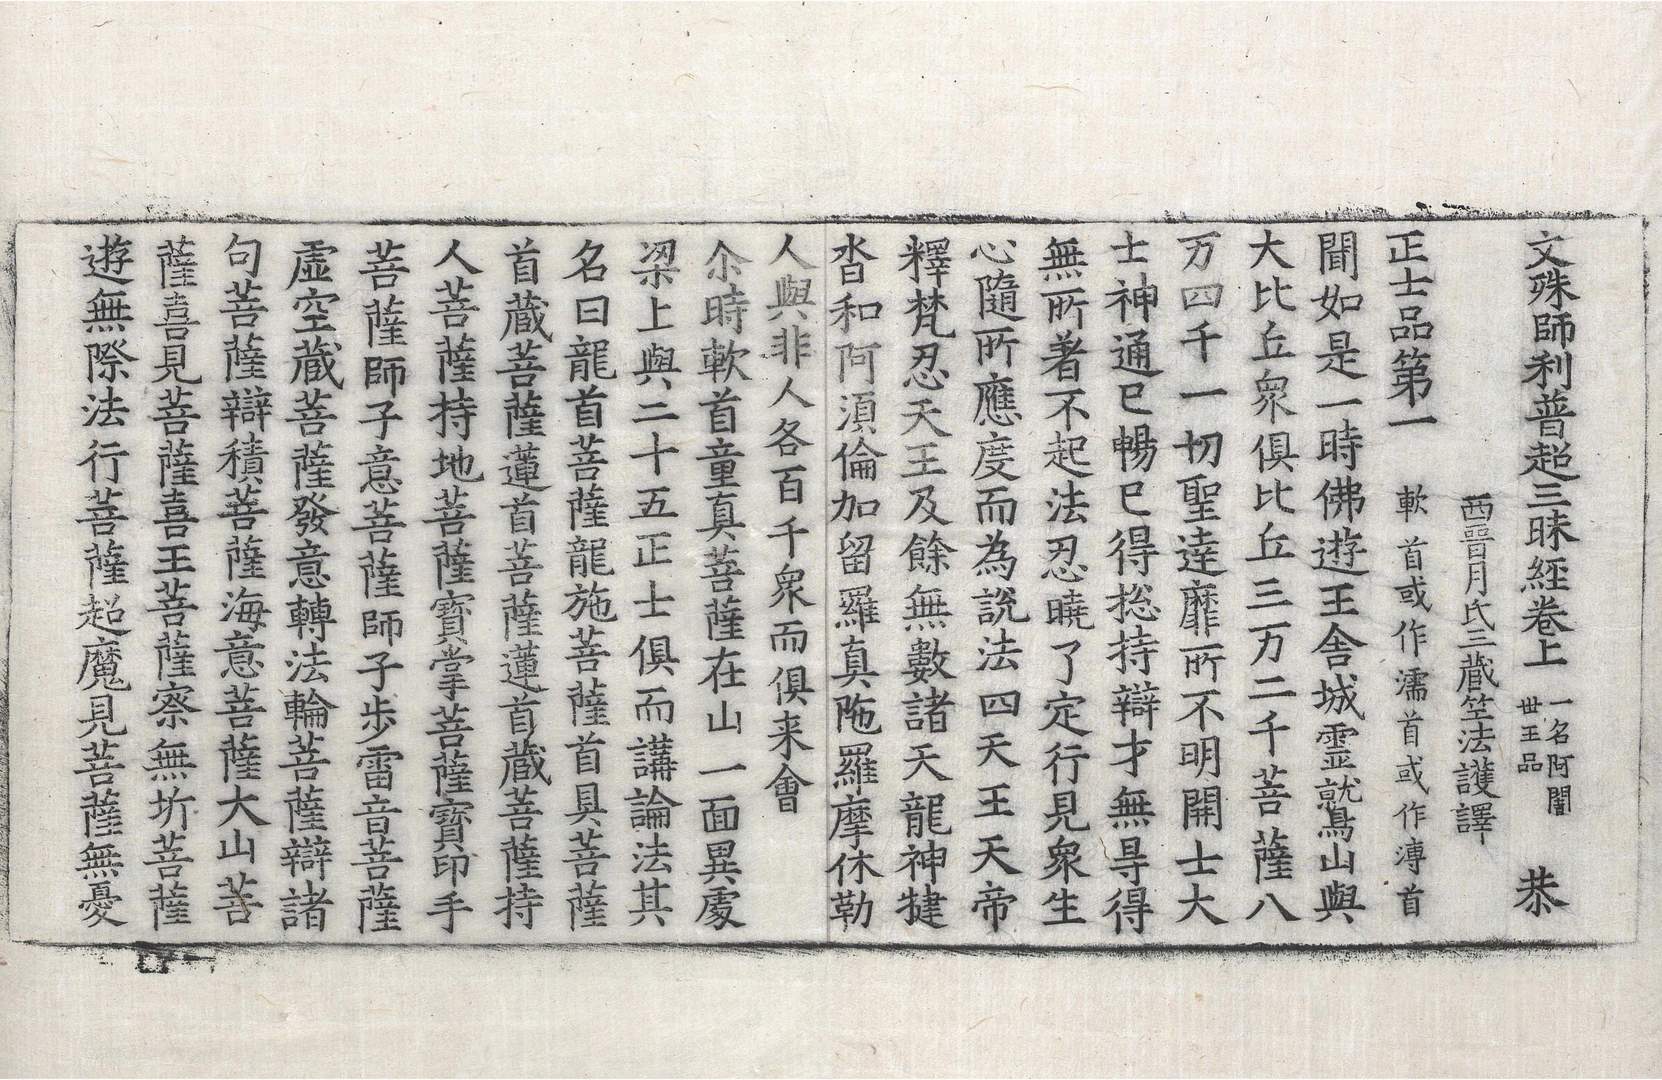 文殊師利普超三昧経卷上 一名阿闍世王品 恭
西晉月氏三藏竺法護譯
正士品第一 軟首或作濡首或作溥首
聞如是一時佛遊王舍城靈鷲山與
大比丘衆俱比丘三万二千菩薩八
万四千一切聖達靡所不明開士大
士神通已暢已得揔持辯才無㝵得
無所著不起法忍曉了定行見衆生
心隨所應度而為說法四天王天帝
釋梵忍天王及餘無數諸天龍神揵
沓和阿須倫加留羅真陁羅摩休勒
人與非人各百千衆而俱来會
尒時軟首童真菩薩在山一面異處
梁上與二十五正士俱而講論法其
名曰龍首菩薩龍施菩薩首具菩薩
首藏菩薩蓮首菩薩蓮首藏菩薩持
人菩薩持地菩薩寶掌菩薩寶印手
菩薩師子意菩薩師子步雷音菩薩
虛空藏菩薩發意轉法輪菩薩辯諸
句菩薩辯積菩薩海意菩薩大山菩
薩喜見菩薩喜王菩薩察無圻菩薩
遊無際法行菩薩超魔見菩薩無憂